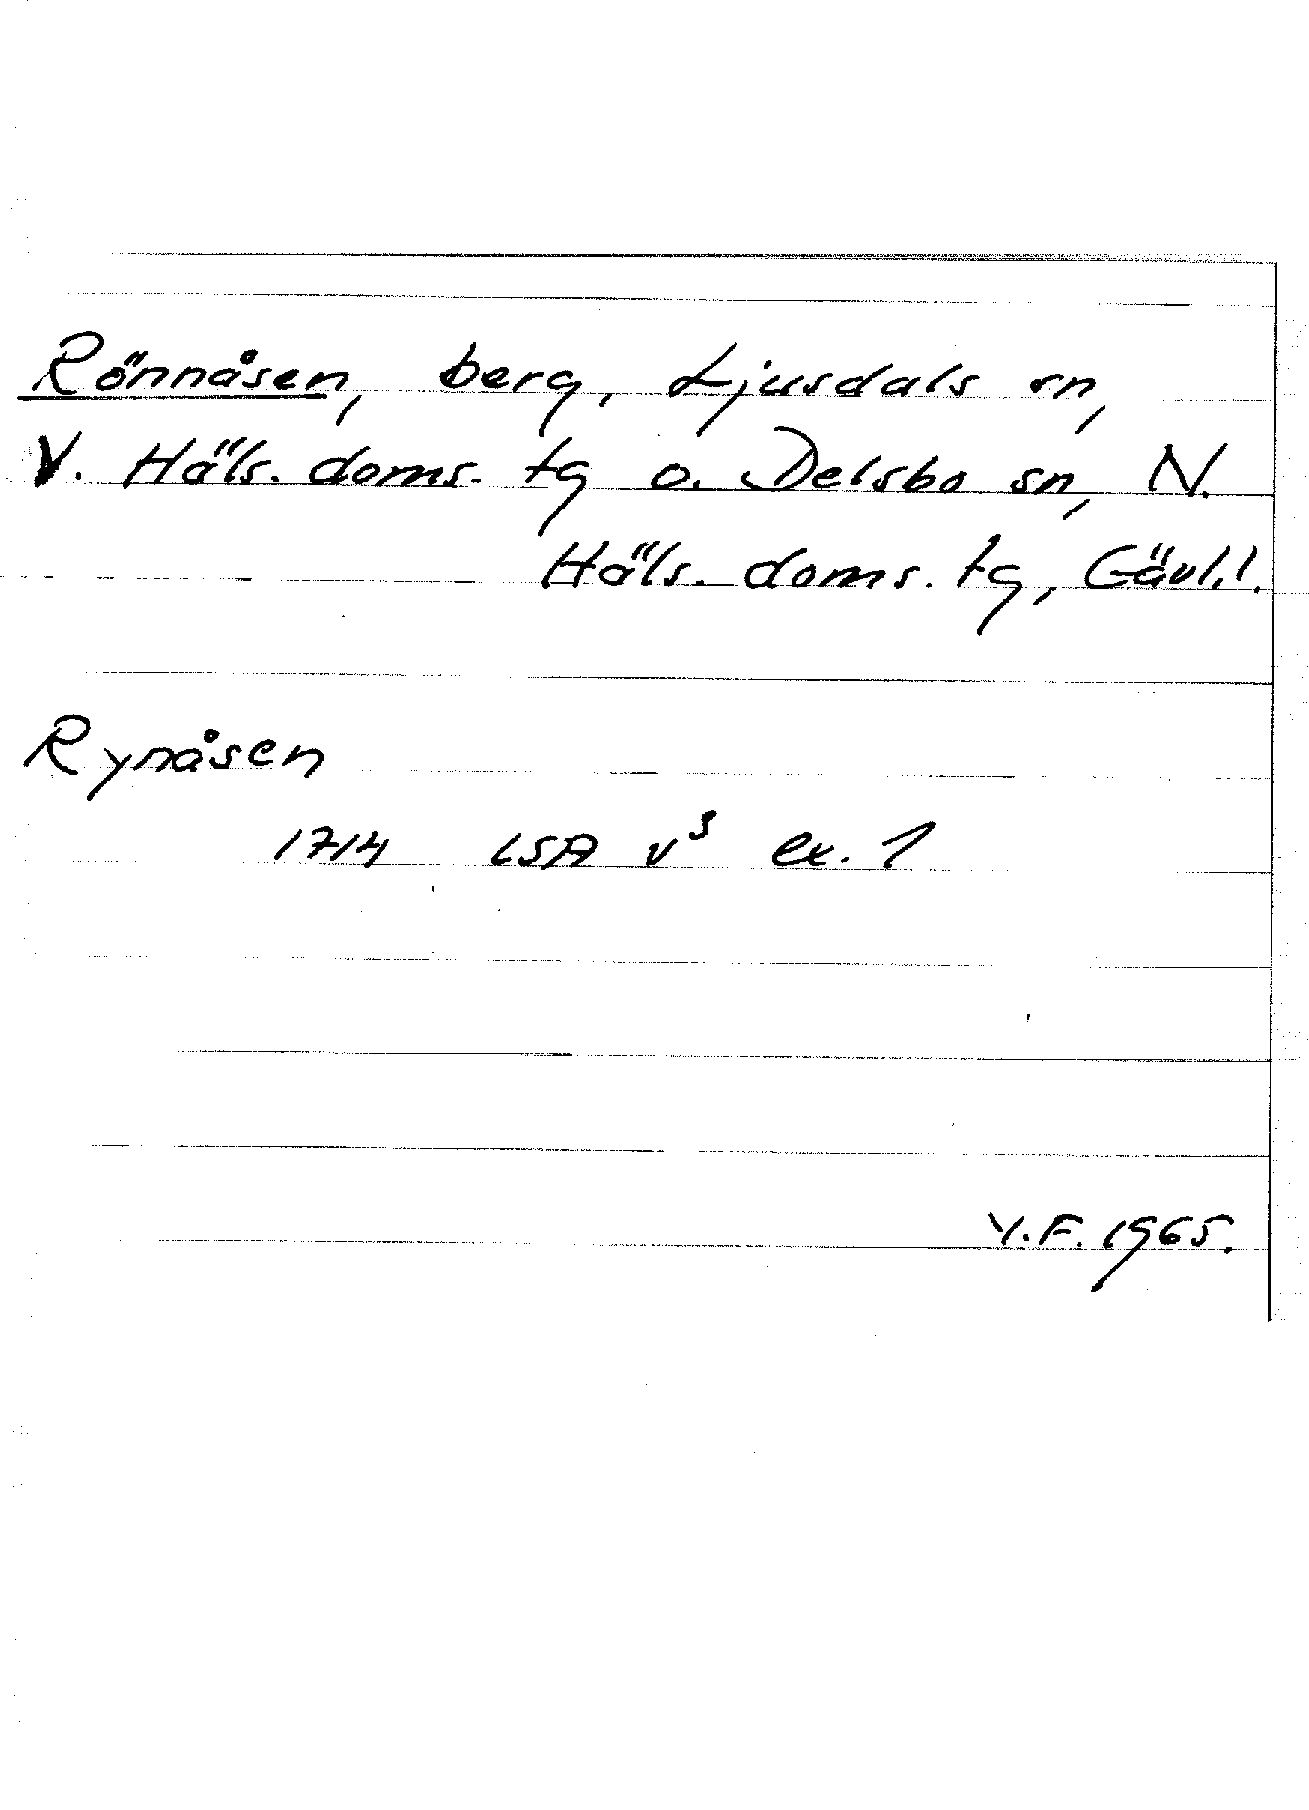 Rönnåsen, berg, Ljusdals sn,
V. Häls. doms. tg o. Delsbo sn, N.
Häls. doms. tg, Gävl.l.
Rynåsen
1714 LSA v³ ex. 1
Y.F. 1965.